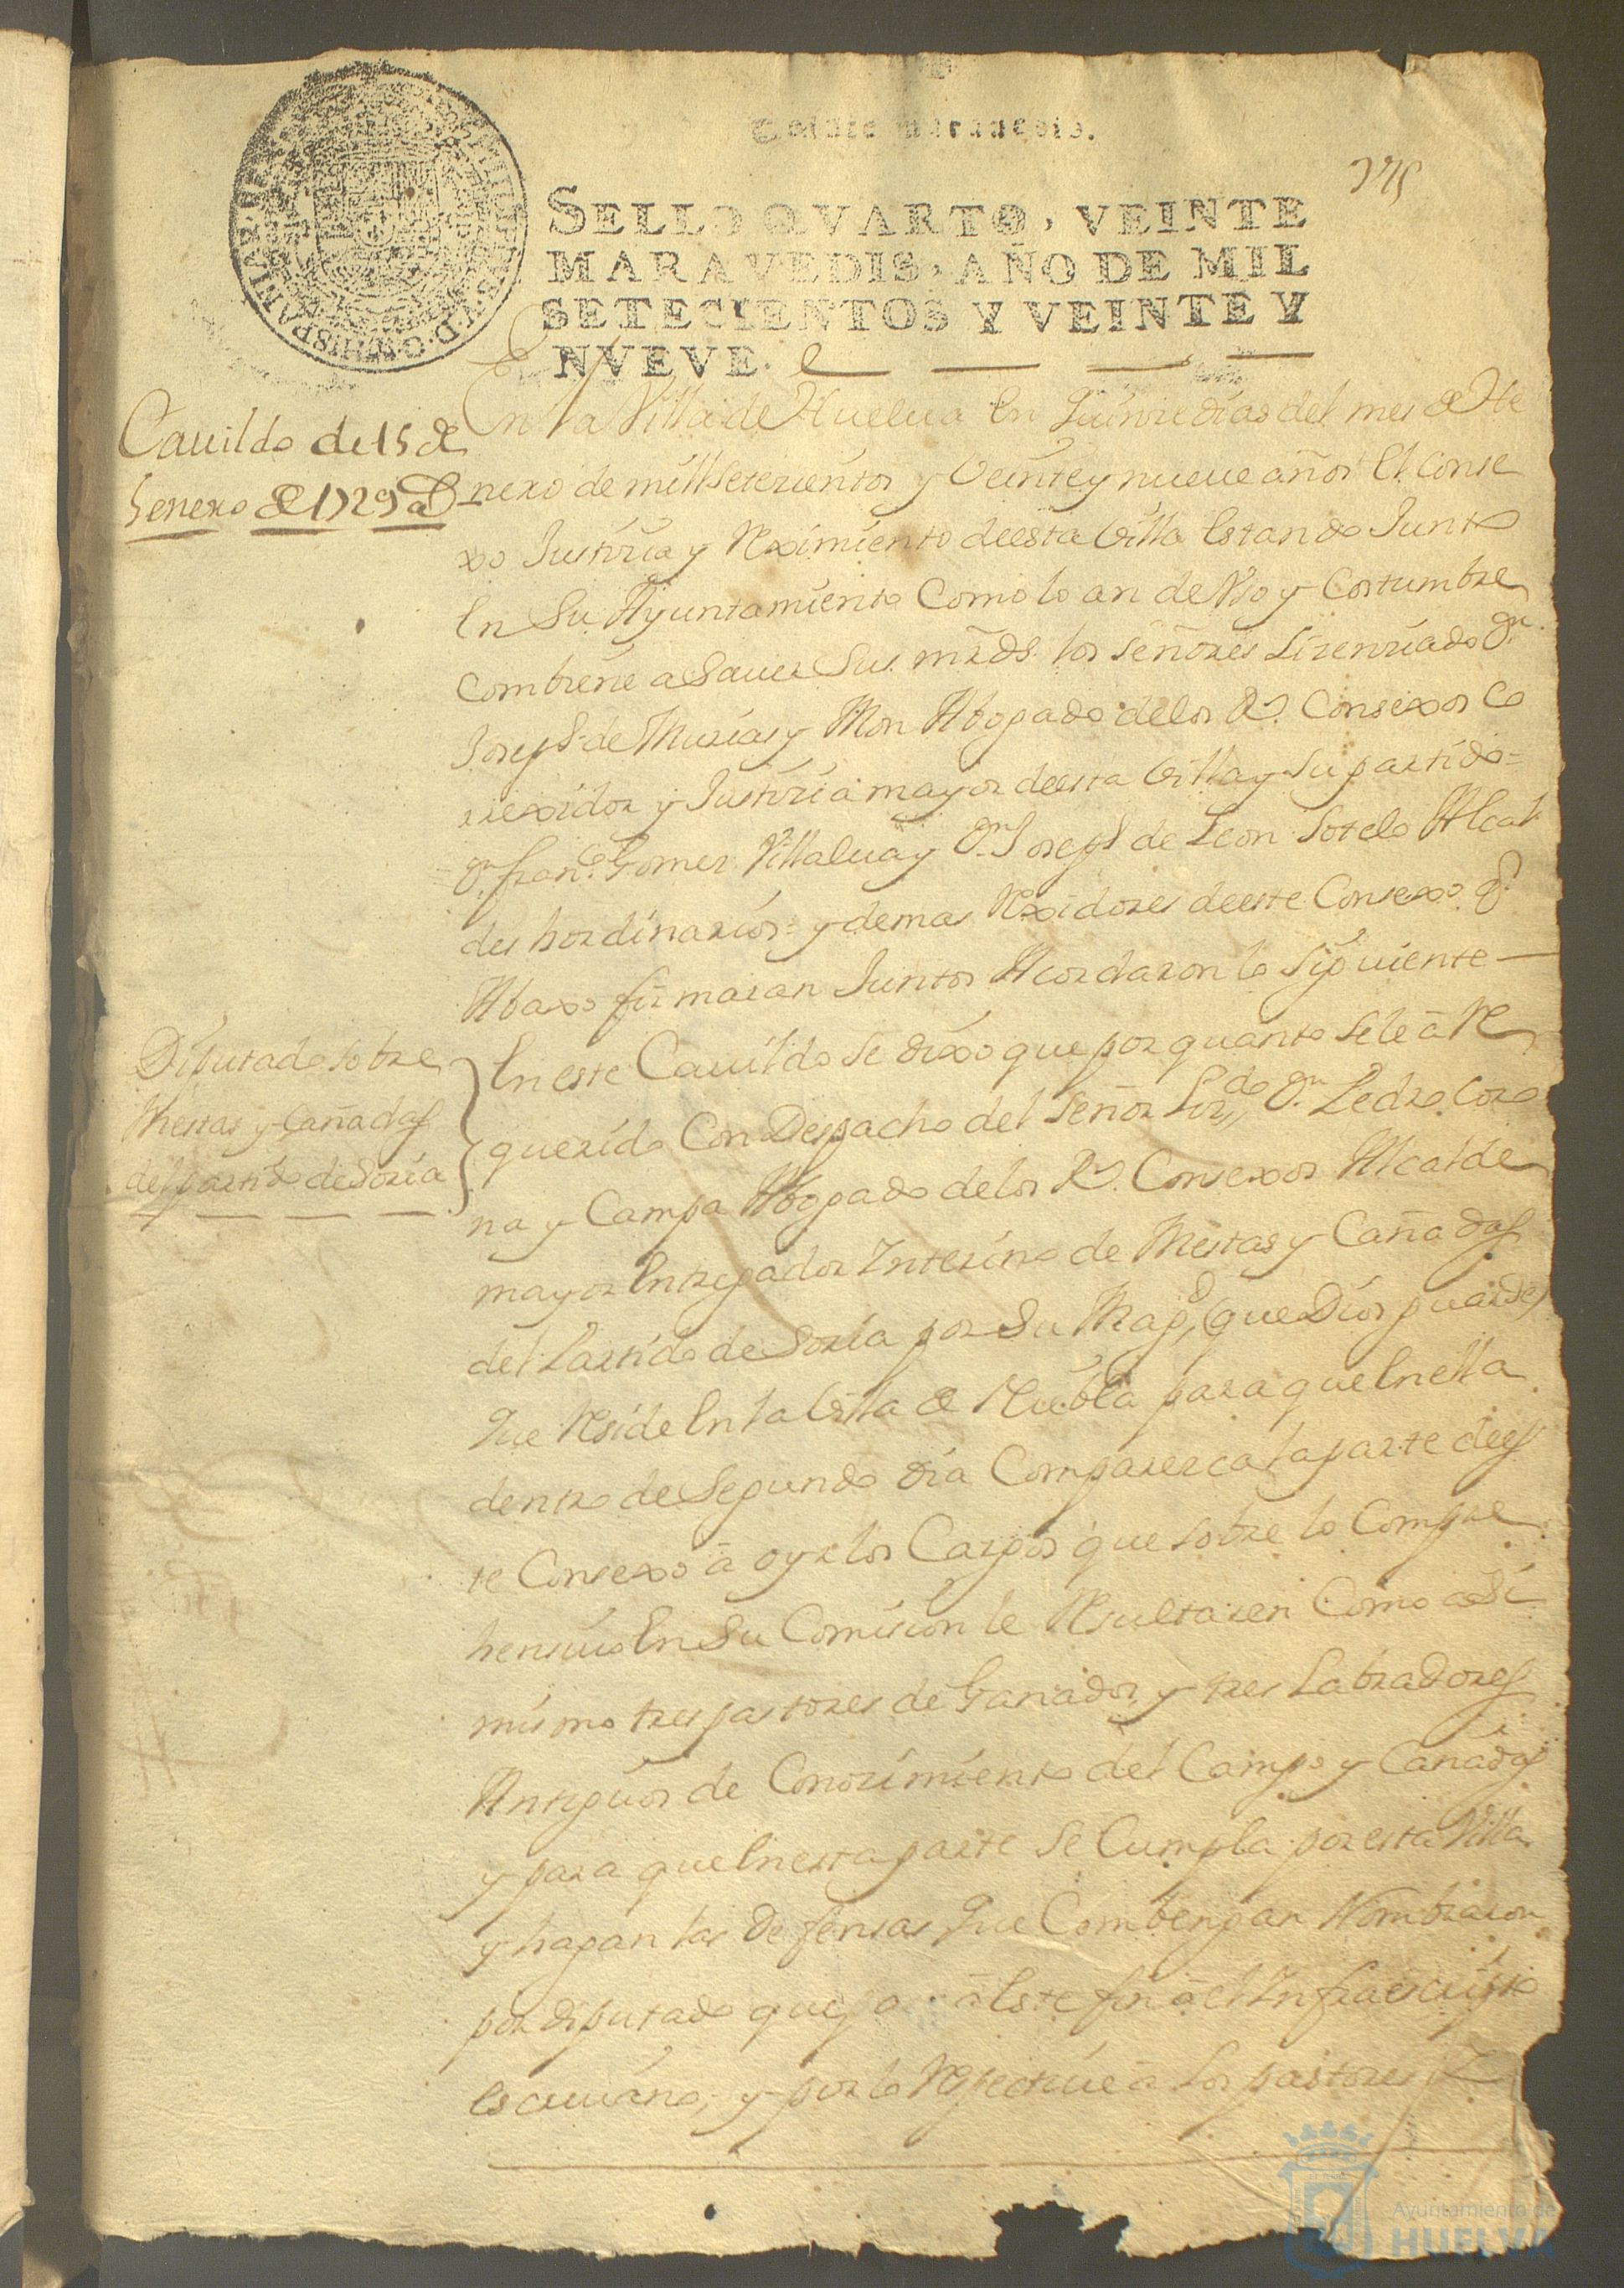 Veinte maravedis.
SELLO QVARTO, VEINTE
MARAVEDIS, AÑO DE MIL
SETECIENTOS Y VEINTE Y
NVEVE.
Cauildo de 15 de
henero de 1729 as
En la Villa de Huelua en quinse dias del mes de He
nero de mill setezientos y Veinte y nueue años El Conse
xo Justizia y Reximiento deesta Villa estando Junto
en Su Ayuntamiento Como lo an de Vso y Costumbre
combiene a Sauer Sus mrds. los señores Lizenziado Dn.
Joseph de Murias y Mon Abogado delos Rs. Consexos Co
rrexidor y Justizia mayor deesta Villa y Su partido =
Dn. Franco. Gomez Villalua y Dn. Joseph de Leon Sotelo Alcal
des hordinarios = y demas Rexidores deeste Consexo q
Abaxo firmaran Juntos Acordaron lo Siguiente
Diputado sobre
Mestas y Cañadas
del partido de Soria
En este Cauildo se dixo que por quanto se le á Re
querido Con Despacho del Señor Lizdo. Dn. Pedro Coro
na y Campa Abogado delos Rs. Consexos Alcalde
mayor Entregador Interino de Mestas y Cañadas
del Partido de Soria por Su Magd. (que Dios guarde)
que Reside En la Villa de Niebla para que En ella
dentro de Segundo dia Comparezca la parte dees
te Consexo á oyr los Cargos que sobre lo Compre
hensiuo En Su Comision le Resultaren Como asi
mismo tres pastores de Ganados y tres Labradores
Antiguos de Conozimiento del Campo y Cañadas
y para que En esta parte Se Cumpla por esta Villa
y hagan las Defensas que Combengan Nombraron
por diputado á Este fin á el Infraescripto
escriuano, y por lo Respectiue á Los pastores
Ayuntamiento de
HUELVA